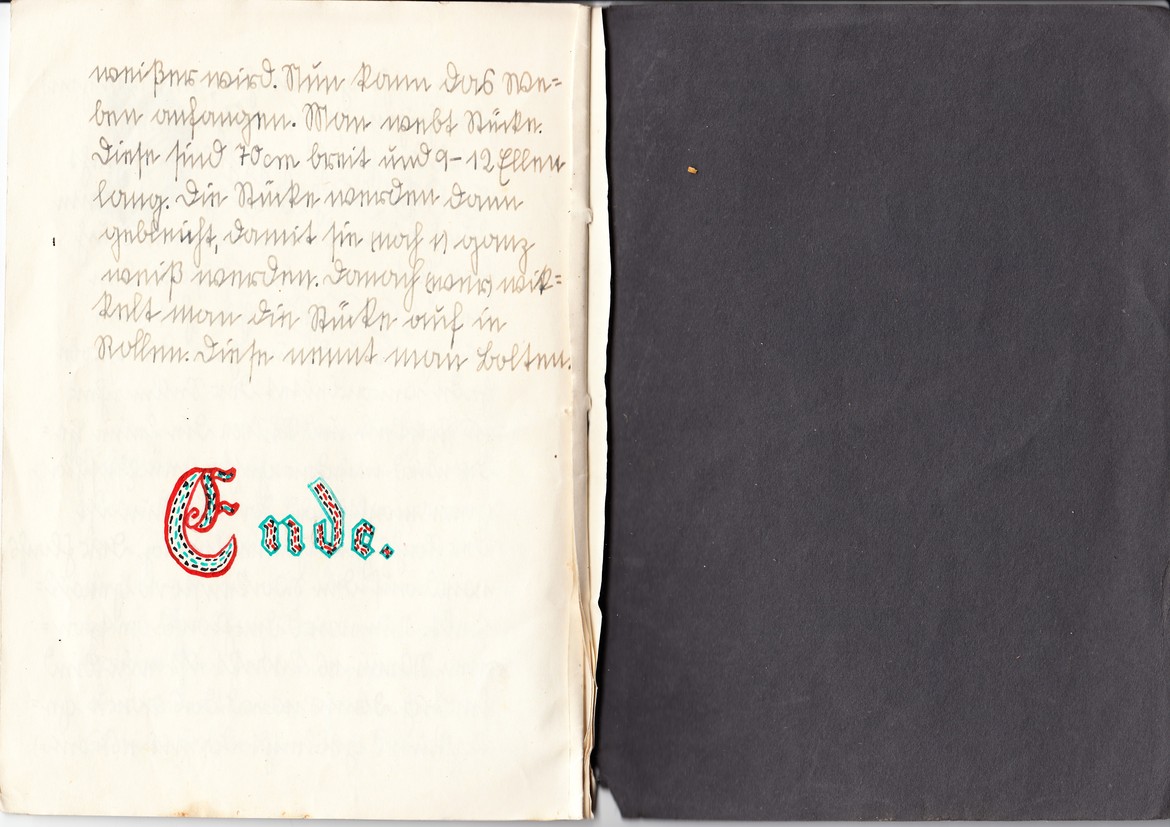 weißer wird. Nun kann das We=
ben anfangen. Man webt Stücke.
Diese sind 70cm breit und 9-12 Ellen
lang. Die Stücke werden dann
gebleicht, damit sie noch ganz
weiß werden. Danach wik=
kelt man die Stücke auf in
Rollen. Diese nennt man Bolten.
Ende.